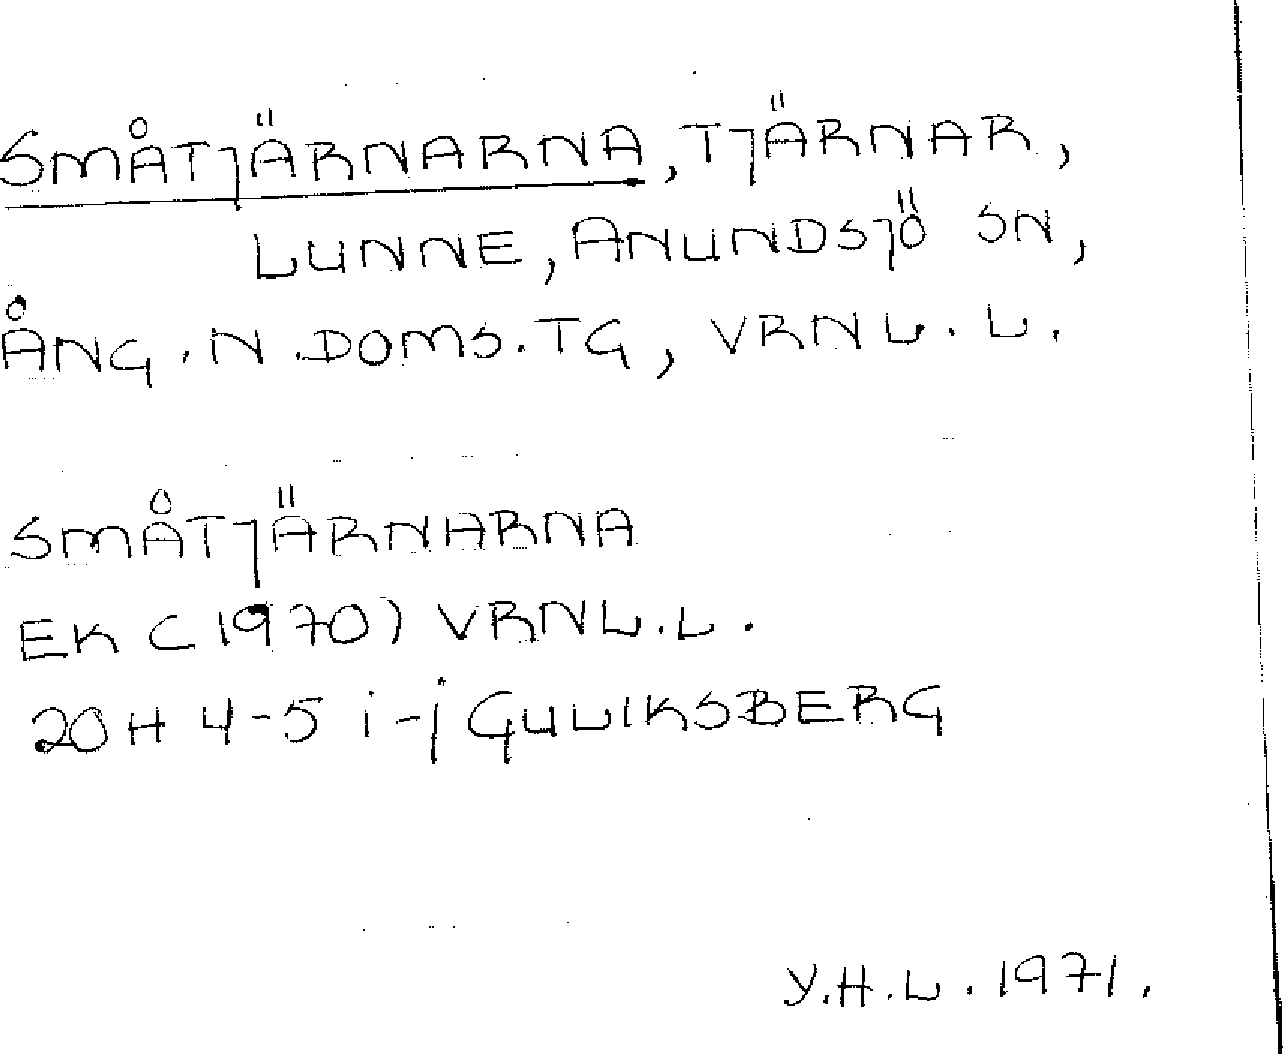 SMÅTJÄRNARNA, TJÄRNAR,
LUNNE, ANUNDSJÖ SN,
ÅNG. N. DOMS. TG, VRNL. L.
SMÅTJÄRNARNA
EK (1970) VRNL. L.
20H 4-5 i-j GULIKSBERG
Y.H.L. 1971.